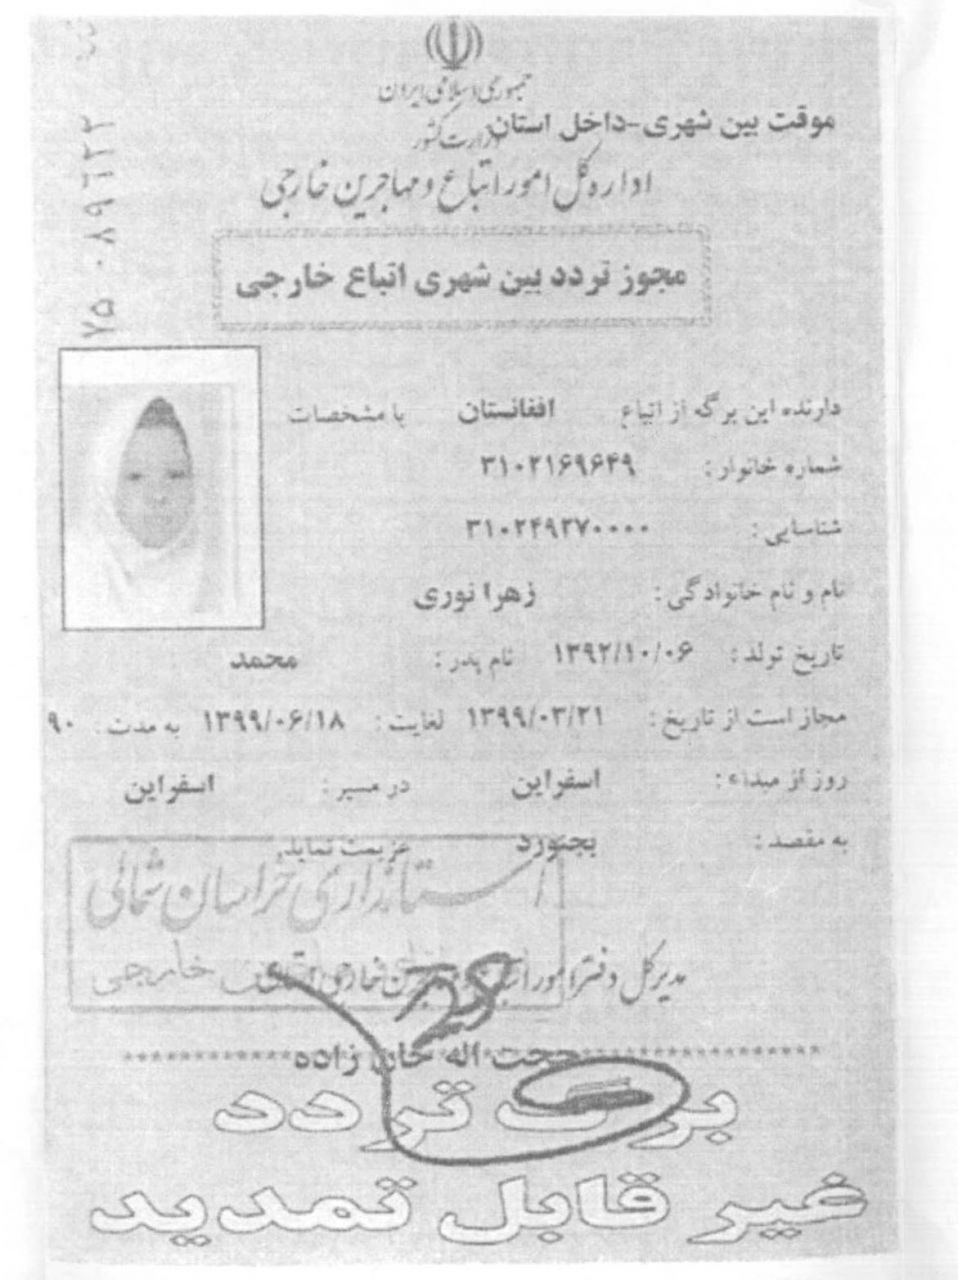 جمهوری اسلامی ایران
موقت بین شهری-داخل استان
وزارت کشور
اداره کل امور اتباع و مهاجرین خارجی
مجوز تردد بین شهری اتباع خارجی
۷۵۰۸۹۶۲۲
دارنده این برگه از اتباع افغانستان با مشخصات
شماره خانوار: ۳۱۰۲۱۶۹۶۴۹
شناسایی: ۳۱۰۲۴۹۲۷۰۰۰۰
نام و نام خانوادگی: زهرا نوری
تاریخ تولد: ۱۳۹۲/۱۰/۰۶ نام پدر: محمد
مجاز است از تاریخ: ۱۳۹۹/۰۳/۲۱ لغایت: ۱۳۹۹/۰۶/۱۸ به مدت: ۹۰
روز از مبداء: اسفراین در مسیر: اسفراین
به مقصد: بجنورد عزیمت نماید
استانداری خراسان شمالی
مدیرکل دفتر امور اتباع خارجی
حجت اله خان زاده
برگ تردد
غیر قابل تمدید